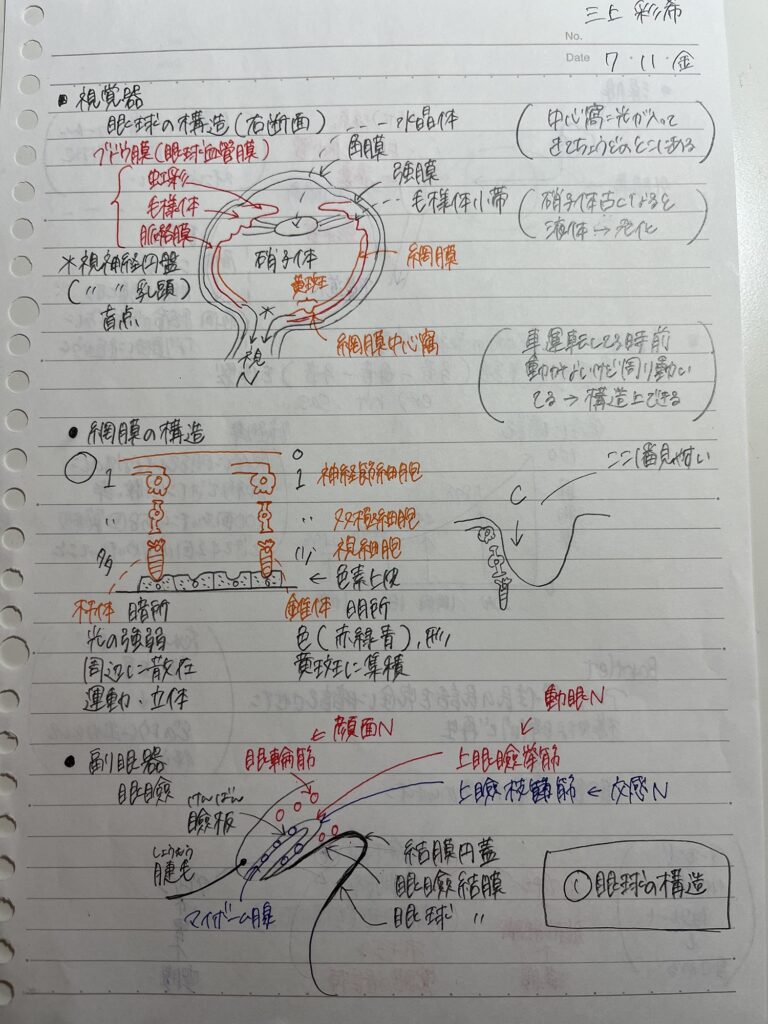 三上 彩希
No.
Date 7・11・金
• 視覚器
眼球の構造(右断面) --- 水晶体
(中心窩=光が入って
きてちょうどのとこにある)
ブドウ膜(眼球血管膜)
角膜
強膜
虹彩
毛様体
脈絡膜
毛様体小帯
(硝子体古くなると
液体→老化)
硝子体
網膜
黄斑
*視神経円盤
(〃 〃 乳頭)
盲点
*
視
N
網膜中心窩
(車運転してる時前
動かないけど周り動い
てる→構造上できる)
• 網膜の構造
ここ1番見やすい
C
1
1 神経節細胞
〃
〃 双極細胞
多
視細胞
← 色素上皮
杆体 暗所
錐体 明所
光の強弱
色(赤緑青), 形
周辺に散在
黄斑に集積
運動・立体
動眼N
顔面N
• 副眼器
眼輪筋
上眼瞼挙筋
眼瞼
けんばん
瞼板
上瞼板筋 ← 交感N
しょうもう
睫毛
マイボーム腺
結膜円蓋
眼瞼結膜
眼球 〃
①眼球の構造